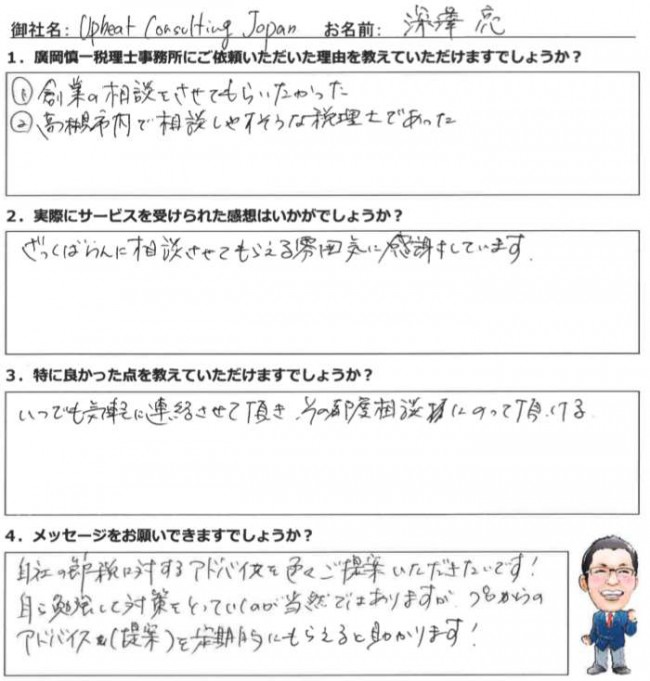 御社名: Upbeat Consulting Japan お名前: 深澤 亮
1．廣岡慎一税理士事務所にご依頼いただいた理由を教えていただけますでしょうか？
① 創業の相談をさせてもらいたかった
② 高槻市内で相談しやすそうな税理士であった
2．実際にサービスを受けられた感想はいかがでしょうか？
ざっくばらんに相談させてもらえる雰囲気に感謝しています.
3．特に良かった点を教えていただけますでしょうか？
いつでも気軽に連絡させて頂き、その都度相談にのって頂ける
4．メッセージをお願いできますでしょうか？
自社の節税に対するアドバイスを色々ご提案いただきたいです！
自ら勉強して対策をとっていくのが当然ではありますが、プロからの
アドバイス(提案)を定期的にもらえると助かります！